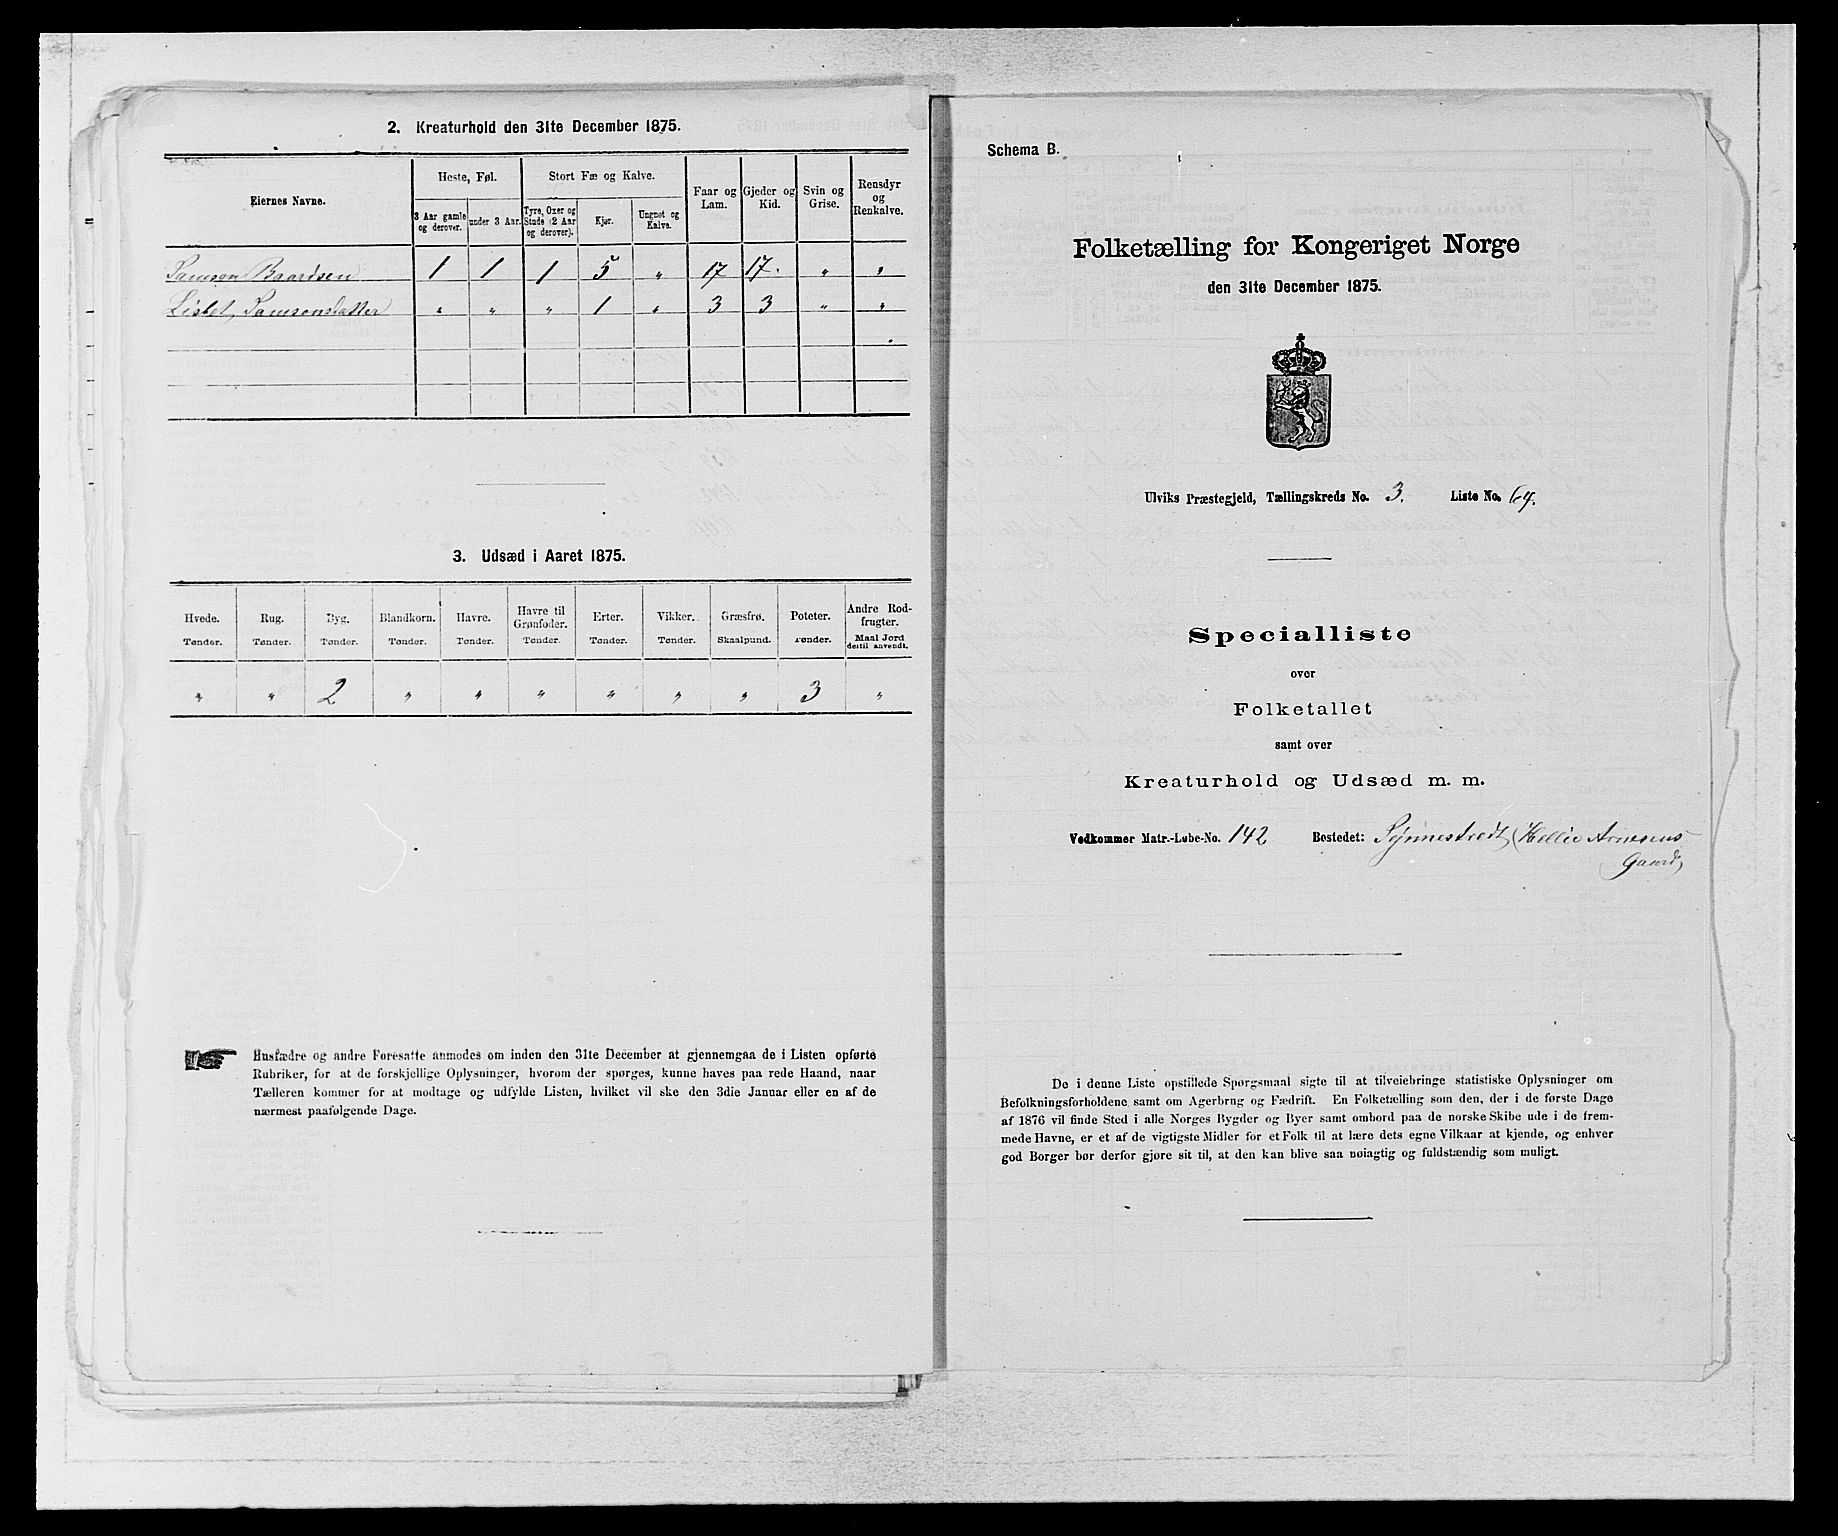 2. Kreaturhold den 31te December 1875.
Eiernes Navne.
Heste, Føl.
Stort Fæ og Kalve.
Faar og Lam.
Gjeder og Kid.
Svin og Grise.
Rensdyr og Renkalve.
3 Aar gamle og derover.
under 3 Aar.
Tyre, Oxer og Stude (2 Aar og derover).
Kjør.
Ungnøt og Kalve.
Samson Baardsen 1 1 1 5 " 17 17. " "
Lisbet Samsonsdatter " " " 1 " 3 3 " "
3. Udsæd i Aaret 1875.
Hvede. Rug. Byg. Blandkorn. Havre. Havre til Grønfoder. Erter. Vikker. Græsfrø. Poteter. Andre Rodfrugter.
Tønder. Tønder. Tønder. Tønder. Tønder. Tønder. Tønder. Tønder. Skaalpund. Tønder. Maal Jord dertil anvendt.
" " 2 " " " " " " 3 "
Husfædre og andre Foresatte anmodes om inden den 31te December at gjennemgaa de i Listen opførte
Rubriker, for at de forskjellige Oplysninger, hvorom der spørges, kunne haves paa rede Haand, naar
Tælleren kommer for at modtage og udfylde Listen, hvilket vil ske den 3die Januar eller en af de
nærmest paafølgende Dage.
Schema B.
Folketælling for Kongeriget Norge
den 31te December 1875.
Ulviks Præstegjeld, Tællingskreds No. 3. Liste No. 64.
Specialliste
over
Folketallet
samt over
Kreaturhold og Udsæd m. m.
Vedkommer Matr.-Løbe-No. 142 Bostedet: Synnestvedt (Hellie Arnesens
Gaard)
De i denne Liste opstillede Spørgsmaal sigte til at tilveiebringe statistiske Oplysninger om
Befolkningsforholdene samt om Agerbrug og Fædrift. En Folketælling som den, der i de første Dage
af 1876 vil finde Sted i alle Norges Bygder og Byer samt ombord paa de norske Skibe ude i de frem-
mede Havne, er et af de vigtigste Midler for et Folk til at lære dets egne Vilkaar at kjende, og enhver
god Borger bør derfor gjøre sit til, at den kan blive saa nøiagtig og fuldstændig som muligt.